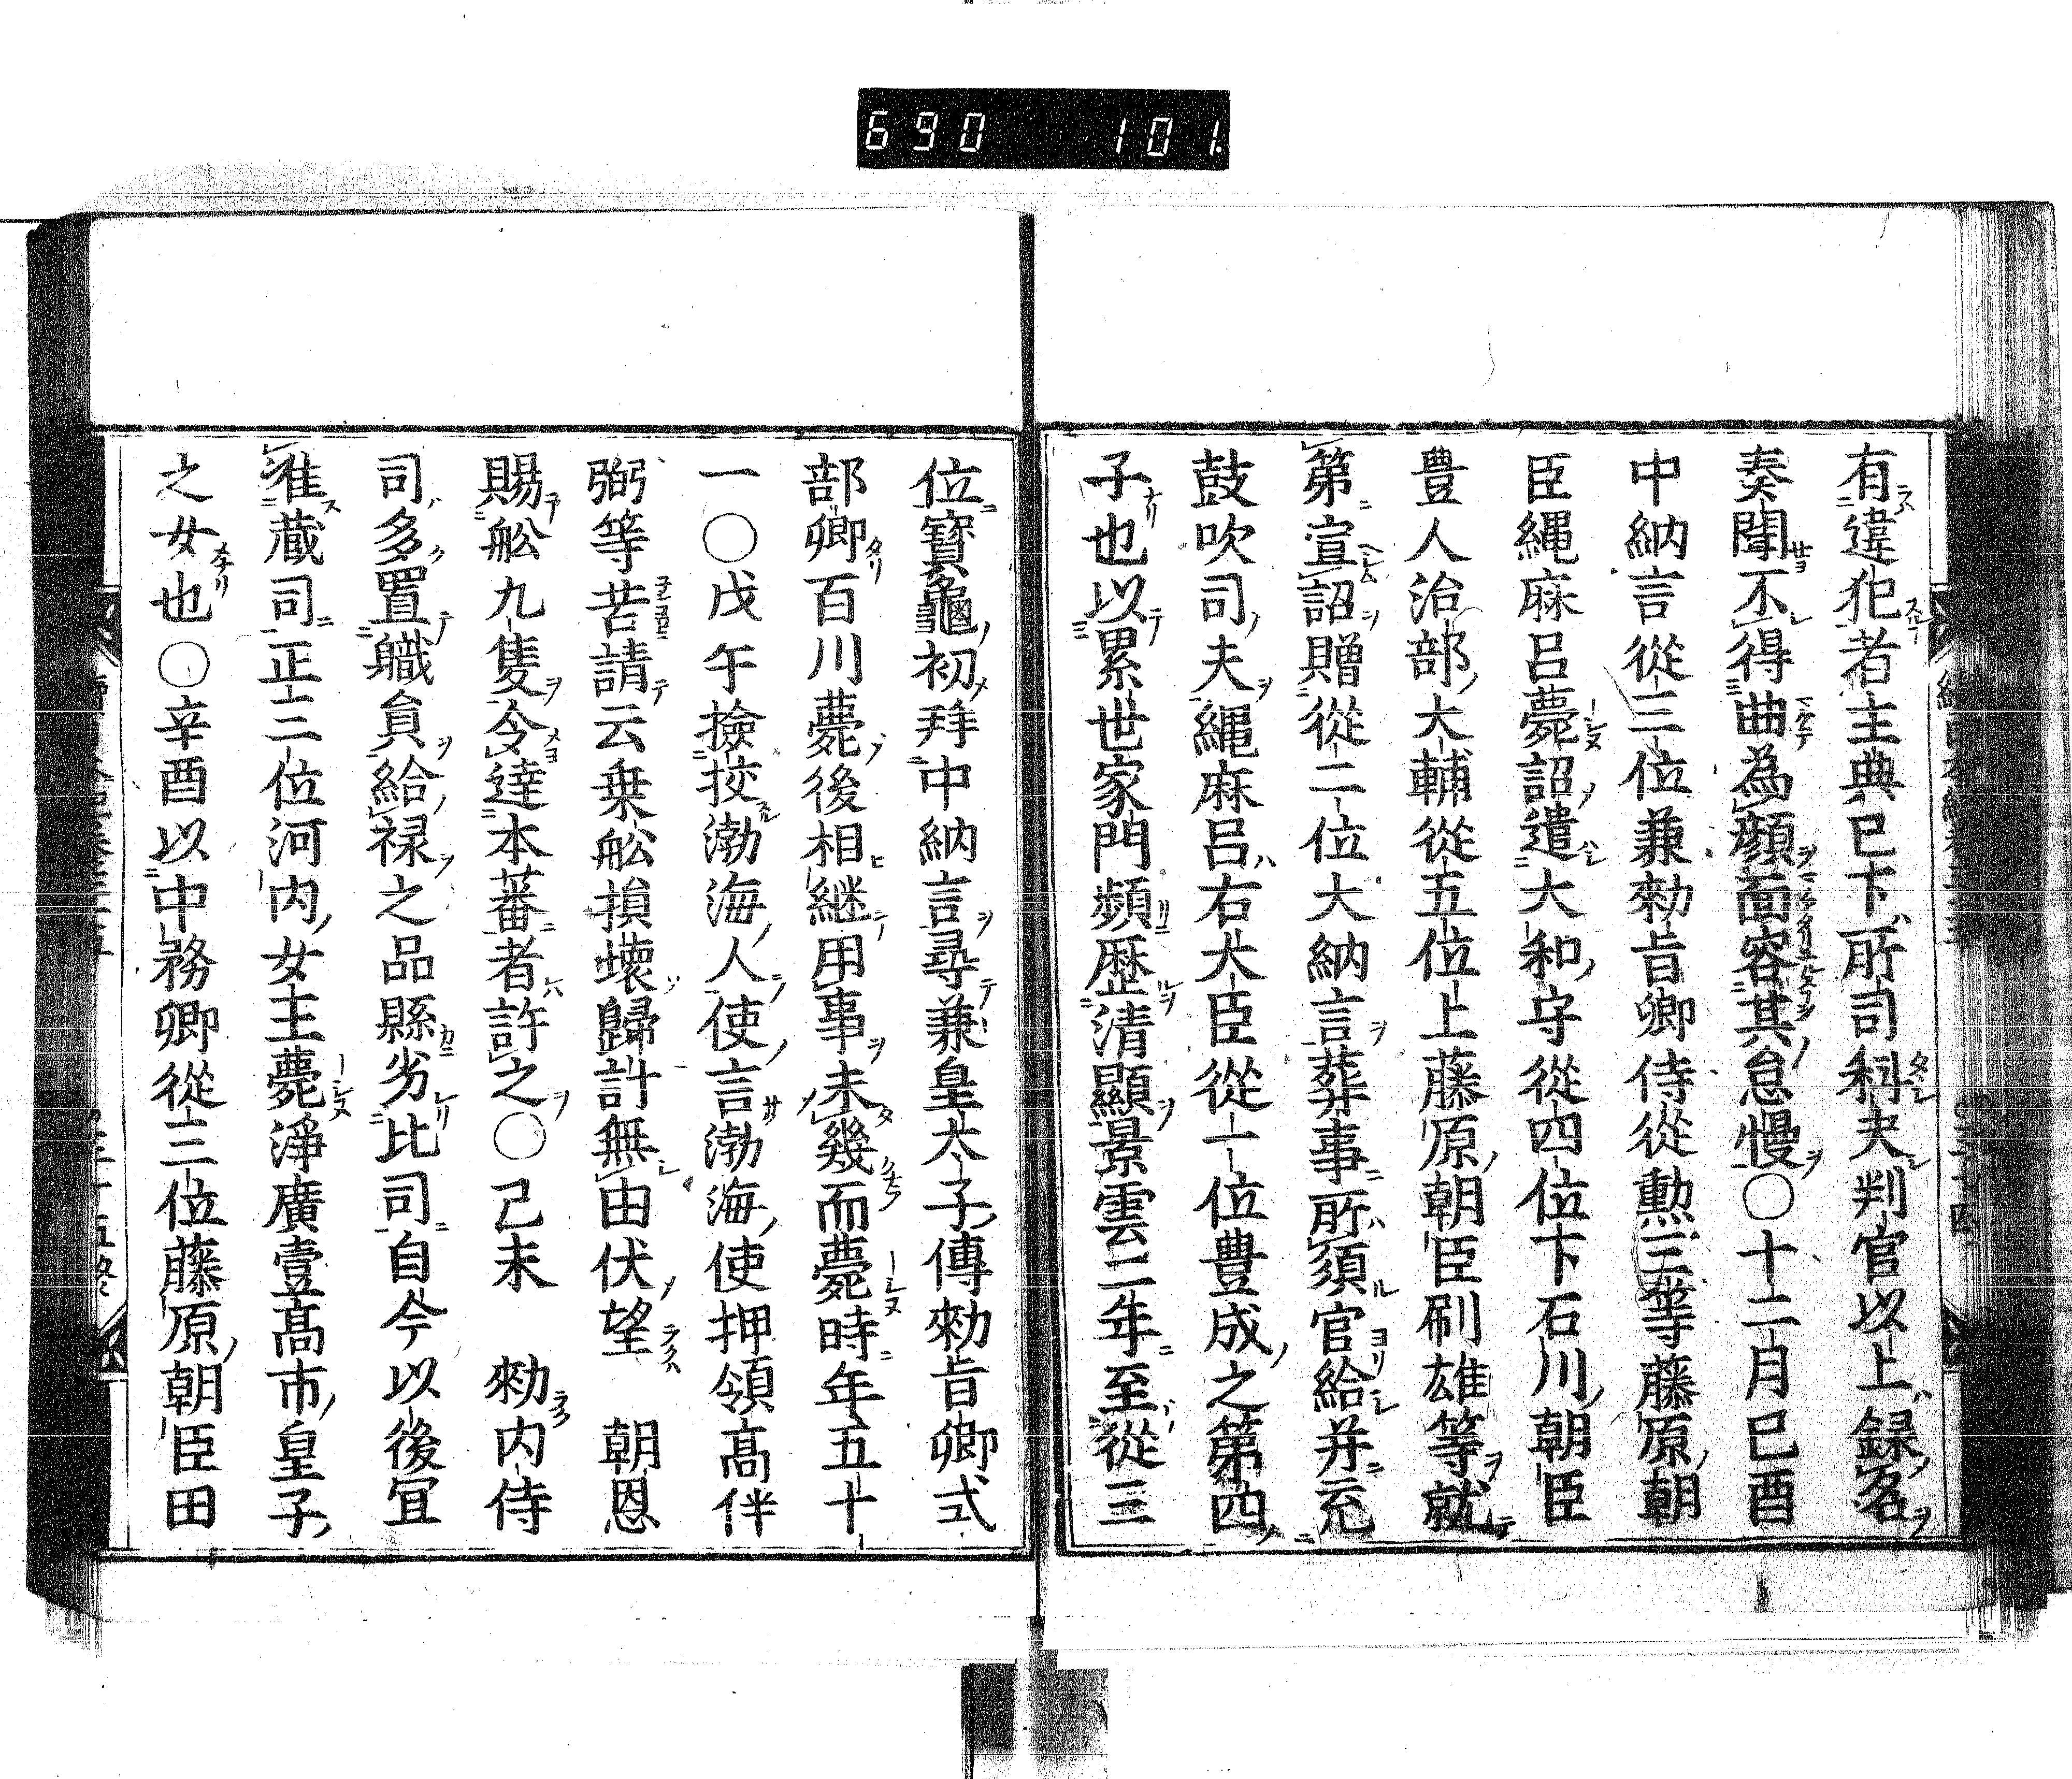 690 101.
有違犯者主典已下所司科決判官以上録名
奏聞不得曲為顔面容其怠慢○十二月己酉
中納言從三位兼勅旨卿侍從勲三等藤原朝
臣縄麻呂薨詔遣大和守從四位下石川朝臣
豊人治部大輔從五位上藤原朝臣刷雄等就
第宣詔贈從二位大納言葬事所須官給并充
鼓吹司夫縄麻呂右大臣從一位豊成之第四
子也以累世家門頻歴清顯景雲二年至從三
位寶龜初拜中納言尋兼皇太子傅勅旨卿式
部卿百川薨後相継用事未幾而薨時年五十
一○戊午撿挍渤海人使言渤海使押領高伴
弼等苦請云乗舩損壊歸計無由伏望 朝恩
賜舩九隻令達本蕃者許之○己未 勅内侍
司多置職員給禄之品懸劣比司自今以後宜
准蔵司正三位河内女王薨淨廣壹高市皇子
之女也○辛酉以中務卿從三位藤原朝臣田